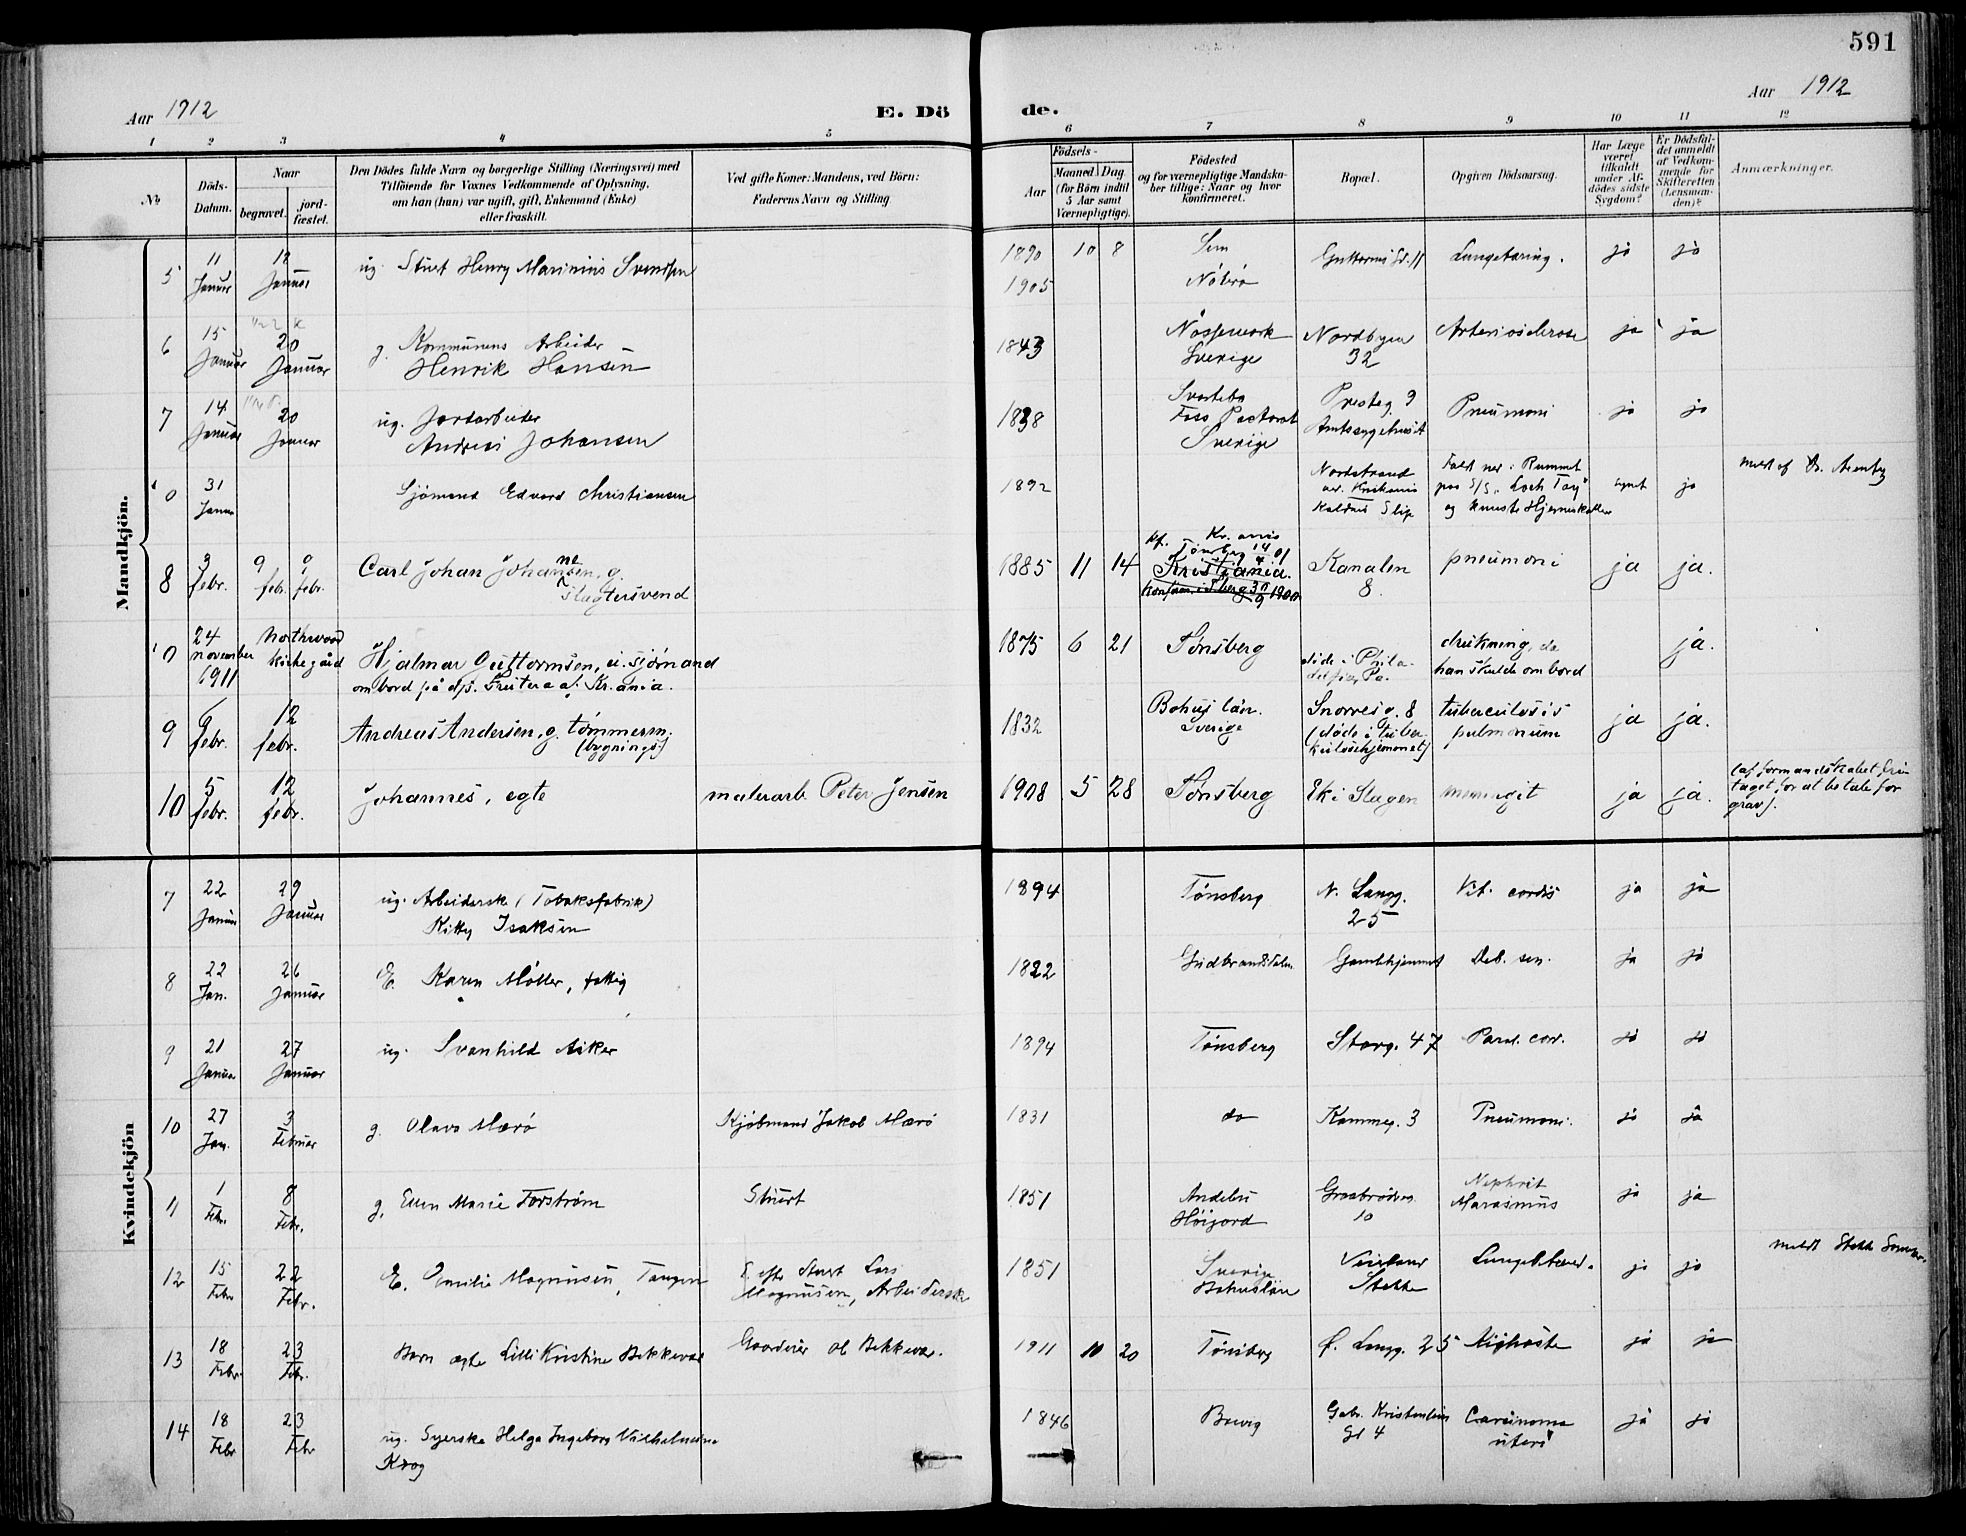 591
Aar 1912
E. Dö de.
Aar 1912
1 2 3 4 5 6 7 8 9 10 11 12
No
Döds-Datum.
Naar
begravet.
jord-fæstet.
Den Dödes fulde Navn og borgerlige Stilling (Næringsvei) med
Tilföiende for Voxnes Vedkommende af Oplysning,
om han (hun) var ugift, gift, Enkemand (Enke)
eller fraskilt.
Ved gifte Koner: Mandens, ved Börn:
Faderens Navn og Stilling.
Födsels-
Aar
Maaned Dag
(for Börn indtil
5 Aar samt
Værnepligtige).
Födested
og for værnepligtige Mandska-
ber tillige: Naar og hvor
konfirmeret.
Bopæl.
Opgiven Dödsaarsag.
Har Læge
været
tilkaldt
under Af-
dödes sidste
Sygdom?
Er Dödsfal-
det anmeldt
af Vedkom-
mende for
Skifteretten
(Lensman-
den)?
Anmærkninger.
Mandkjön.
5 11 Januar 18 Januar ug. Stuert Henry Marinius Svendsen 1890 10 8 Sem Guttormsgd. 11 Lungetæring. ja ja
1905 Nöterö
6 15 Januar 20 Januar g. Kommunens Arbeider
Henrik Hansen 1843 Nössemark
Sverige Nordbyen
32 Arteriosclerose ja ja
7 14 Januar 20 Januar ug. Jordarbeider
Andreas Johansen 1838 Svarteba
Foss Pastorat
Sverige Presteg 9
Amtssygehuset Pneumoni ja ja
0 31 Januar Sjömand Edvard Christiansen 1892 Nordstrand
Kaldnes Slip Faldt ned i Rummet
paa S/S. "Loch Tay"
og knuste Hjerneskallen ja
8 3 febr. 9 febr. 9 febr. Carl Johan Johannesen, g.
slagtersvend 1885 11 14 Kr.ania
Tönsberg 14/4 01
Kristiania.
Konfirm. i Tberg 30/9 1900 Kanalen
8. pneumoni ja ja.
0 24 november 1911 Northwood
kirkegård Hjalmar Guttormsen, u. sjømand
ombord på d/s. Freitera af Kr.ania. 1875 6 21 Tønsberg døde i Phila-
delfia, Pa. drukning, da
han skulde om bord ja.
9 febr. 12 febr. Andreas Andersen, g. tömmerm.
(bygnings) 1832 Bohus län.
Sverige Snorresg. 8
(døde i Tuber-
kulosehjemmet) tuberculosis
pulmonum ja ja.
10 5 febr. 12 febr. Johannes, egte malerarb. Peter Jensen 1908 5 28 Tønsberg Ek i Slagen meningit ja ja. (af formandskabet fri-
taget for at betale for
grav).
Kvindekjön
7 22 Januar 29 Januar ug. Arbeiderske (Tobaksfabrik)
Kitty Isaksen 1894 Tønsberg N. Langg.
25 Vit. cordis ja ja
8 22 Jan. 26 Januar E. Karen Møller, fattig 1822 Gudbrandsdalen Gamlehjemmet Deb. sen. ja ja
9 21 Januar 27 Januar ug. Svanhild Aiker 1894 Tønsberg Storg. 47 Paral. cor. ja ja
10 27 Jan. 3 Februar g. Olava Mærø Kjøbmand Jakob Mærø 1831 do Kammeg. 3 Pneumoni. ja ja
11 1 Febr. 8 Febr. g. Ellen Marie Forström Stuert 1851 Andebu
Höijord Graabrødreg.
10 Nephrit
Marasmus ja ja
12 15 Febr 22 Febr. E. Emilie Magnusen, Tangen E. efter Stuert Lars
Magnusen, Arbeiderske 1851 Sverige
Bohuslän Veierland
Stokke ja ja
13 18 Febr. 23 Febr. Barn ægte Lilli Kristine Bekkevar Gaardeier Ol Bekkevar. 1911 11 20 Tönsberg Ø. Langg. 25 Kighoste ja ja
14 18 Febr 23 Febr ug. Syerske Helga Ingeborg Vilhelmine
Krog 1846 Gabr. Kristensens
Gd 4 Carcinoma
uteri ja ja